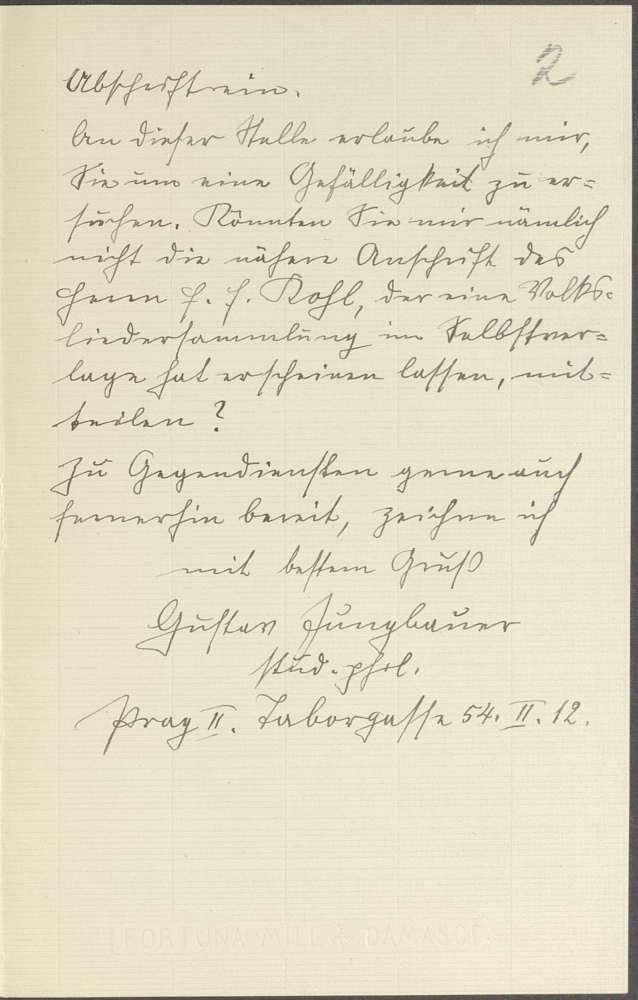 2
Abschrift ein.
An dieser Stelle erlaube ich mir,
Sie um eine Gefälligkeit zu er=
suchen. Könnten Sie mir nämlich
nicht die nähere Anschrift des
Herrn F. F. Kohl, der eine Volks=
liedersammlung im Selbstver=
lage hat erscheinen lassen, mit=
teilen?
Zu Gegendiensten gerne auch
fernerhin bereit, zeichne ich
mit bestem Gruß
Gustav Jungbauer
stud. phil.
Prag II. Taborgasse 54. II. 12.
FORTUNA MILL